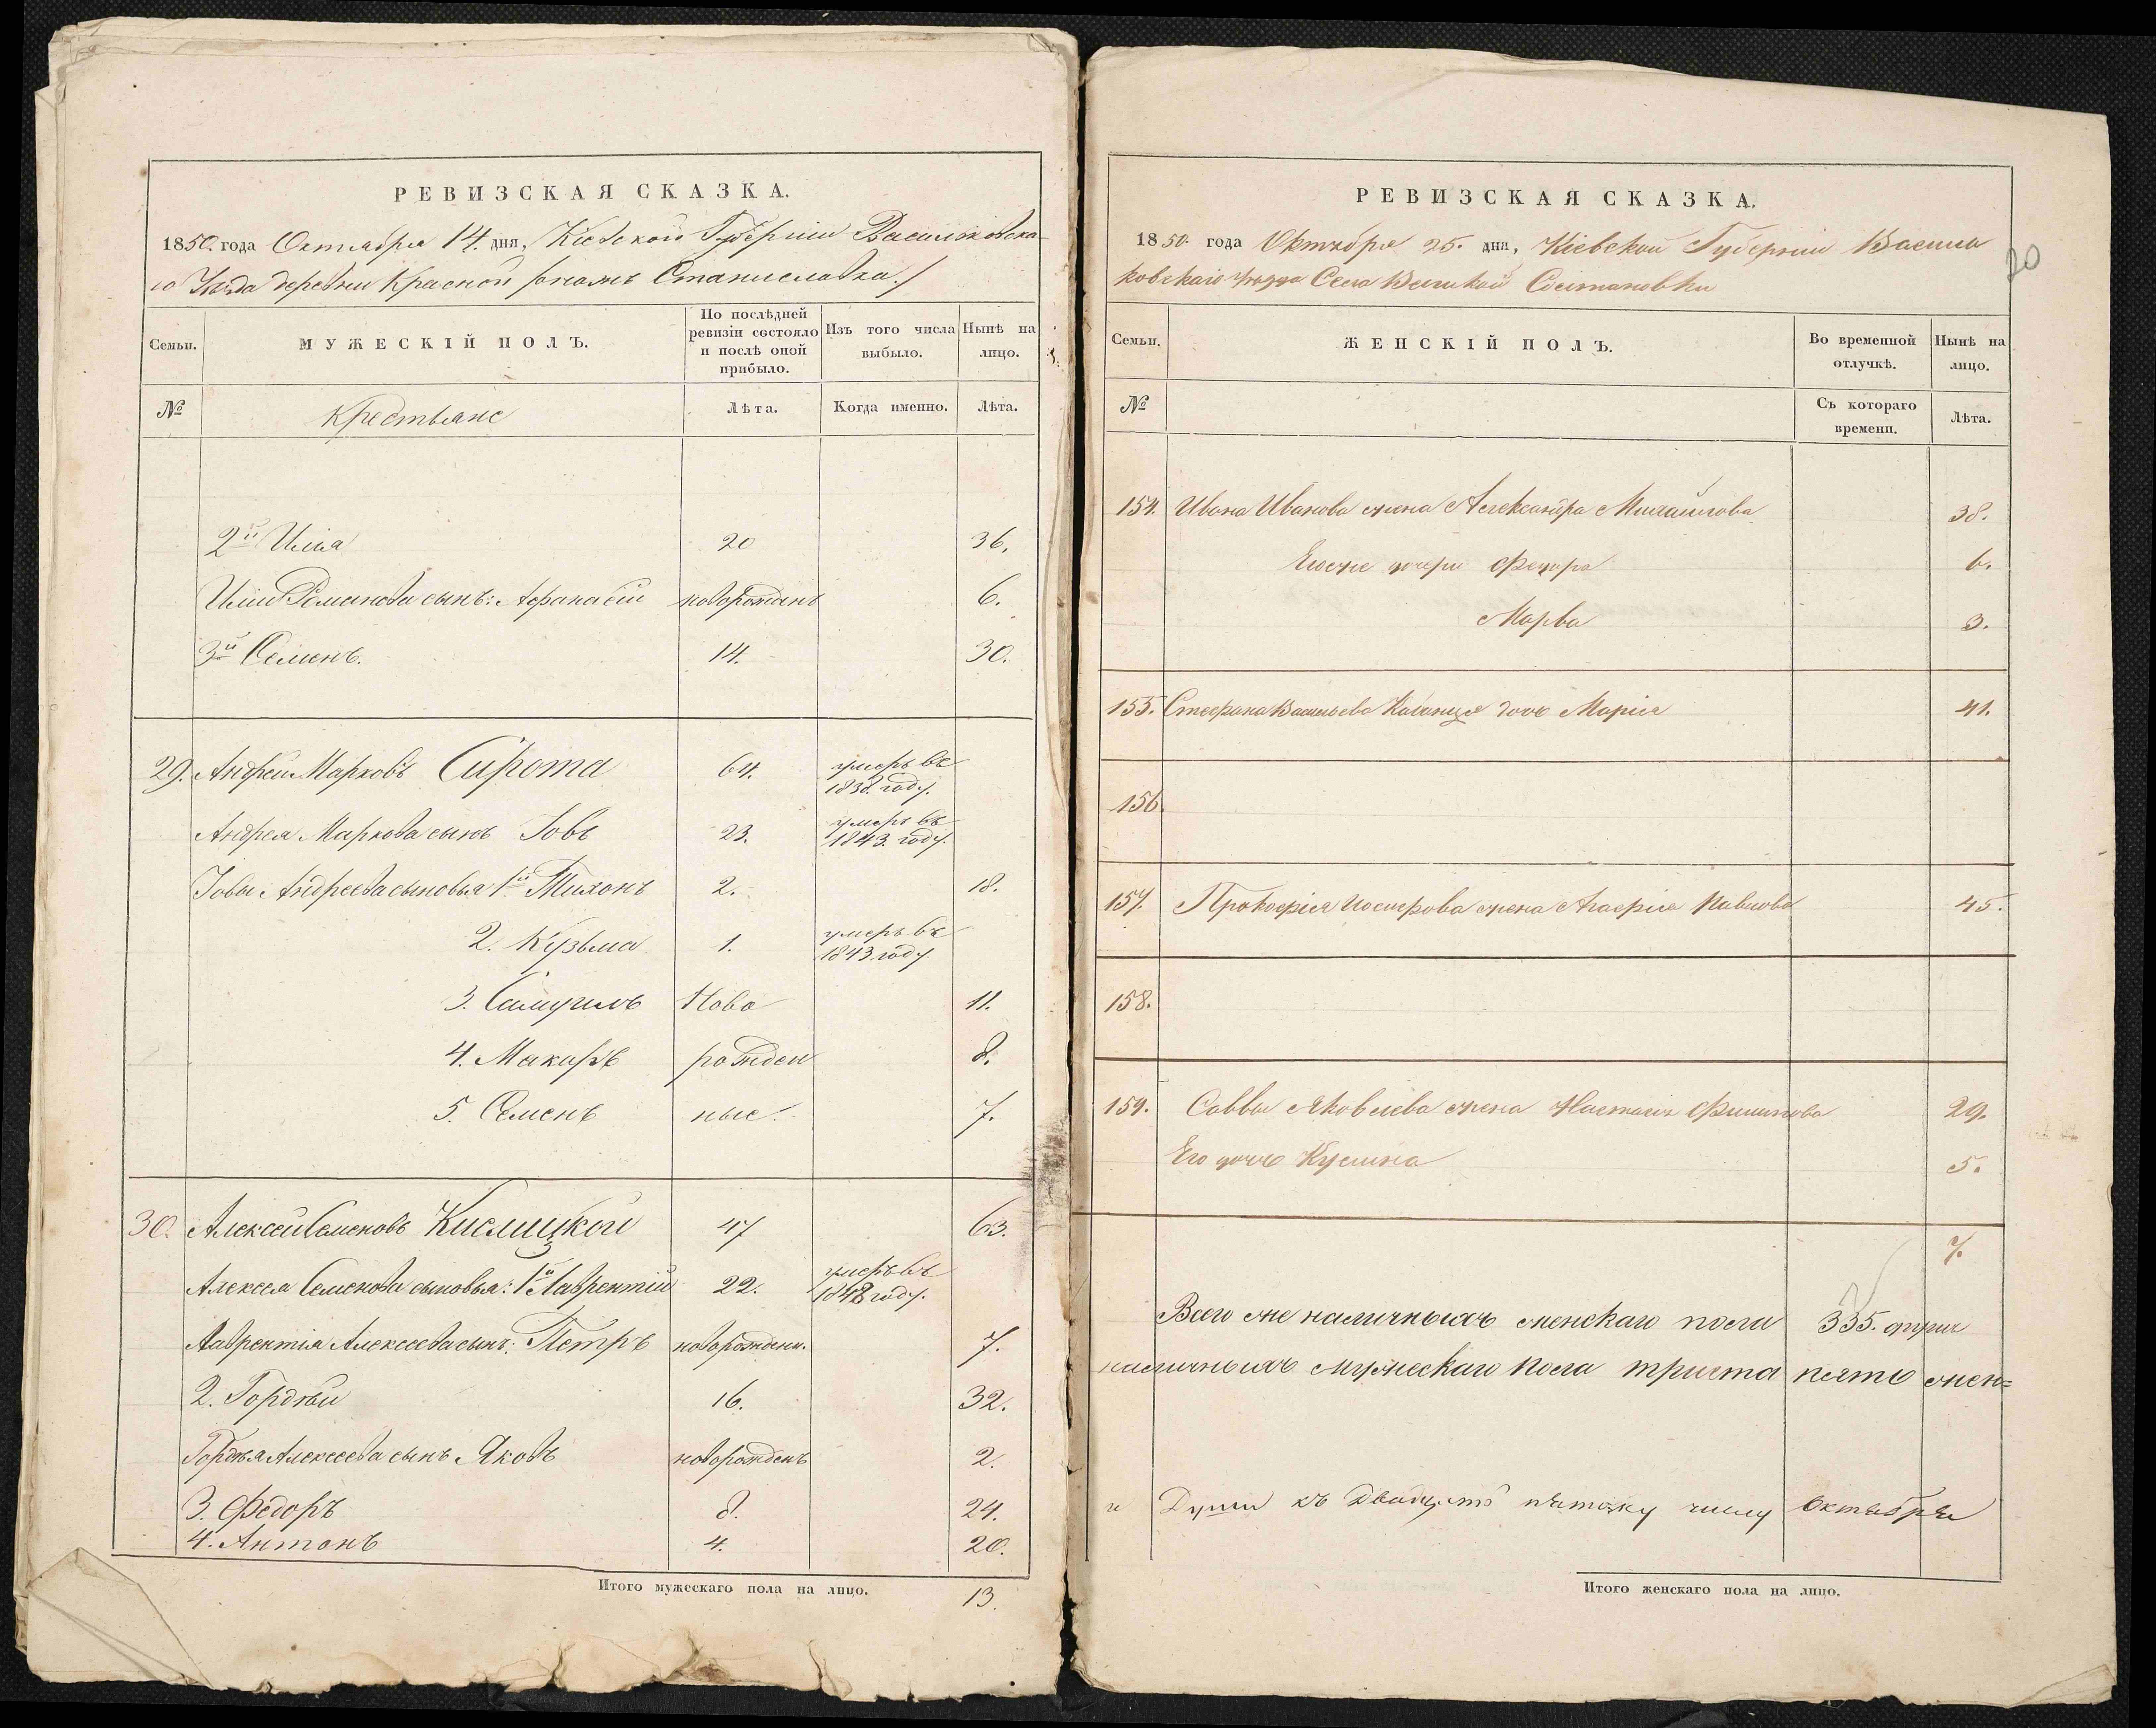 РЕВИЗСКАЯ СКАЗКА.
1850. года Октября 14. дня, Кіевской Губерніи Васильковска-
го Уѣзда деревни Красной
Семьи.
МУЖЕСКІЙ ПОЛЪ.
По послѣдней ревизіи состояло и послѣ оной прибыло.
Изъ того числа выбыло.
Нынѣ на лицо.
№
Крестьяне
Лѣта.
Когда именно.
Лѣта.
2й Илія 20 36.
Иліи Романова сынъ: Афанасій новорожденъ 6.
3й Семенъ. 14. 30.
29. Андрей Марковъ Сирота 64. умеръ въ 1838. году.
Андрея Маркова сынъ Іовъ 23. умеръ въ 1843. году.
Іовы Андреева сыновья 1й Тихонъ 2. 18.
2. Кузьма 1. умеръ въ 1843. году
3. Самуилъ Ново 11.
4. Макаръ рожден 8.
5. Семенъ ные. 7.
30. Алексей Семеновъ Кислицкой 47 63.
Алексея Семенова сыновья: 1й Лаврентій 22. умеръ въ 1848 году.
Лаврентія Алексеева сынъ: Петръ новорожден. 7.
2. Гордѣй 16. 32.
Гордѣя Алексеева сынъ Яковъ новорожденъ 2.
3. Федоръ 8. 24.
4. Антонъ 4. 20.
Итого мужескаго пола на лицо. 13.
20
РЕВИЗСКАЯ СКАЗКА.
1850. года Октября 25. дня, Кіевской Губерніи Василь
ковскаго уѣзда Села Великой
Семьи.
ЖЕНСКІЙ ПОЛЪ.
Во временной отлучкѣ.
Нынѣ на лицо.
№
Съ котораго времени.
Лѣта.
154. Ивана Иванова жена Александра Михайлова 38.
Егоже дочери Федора 6.
Марва 3.
155. Стефана Васильева дочь Марія 41.
156.
157. Прокофія Иосифова жена Агафія Павлова 45.
158.
159. Саввы Яковлева жена Настасія Филипова 29.
Его дочь 5.
7.
Всего же наличныхъ женскаго пола 335. душъ
наличныхъ мужескаго пола триста пять жен=
Души къ двадцать пятому числу Октября
Итого женскаго пола на лицо.